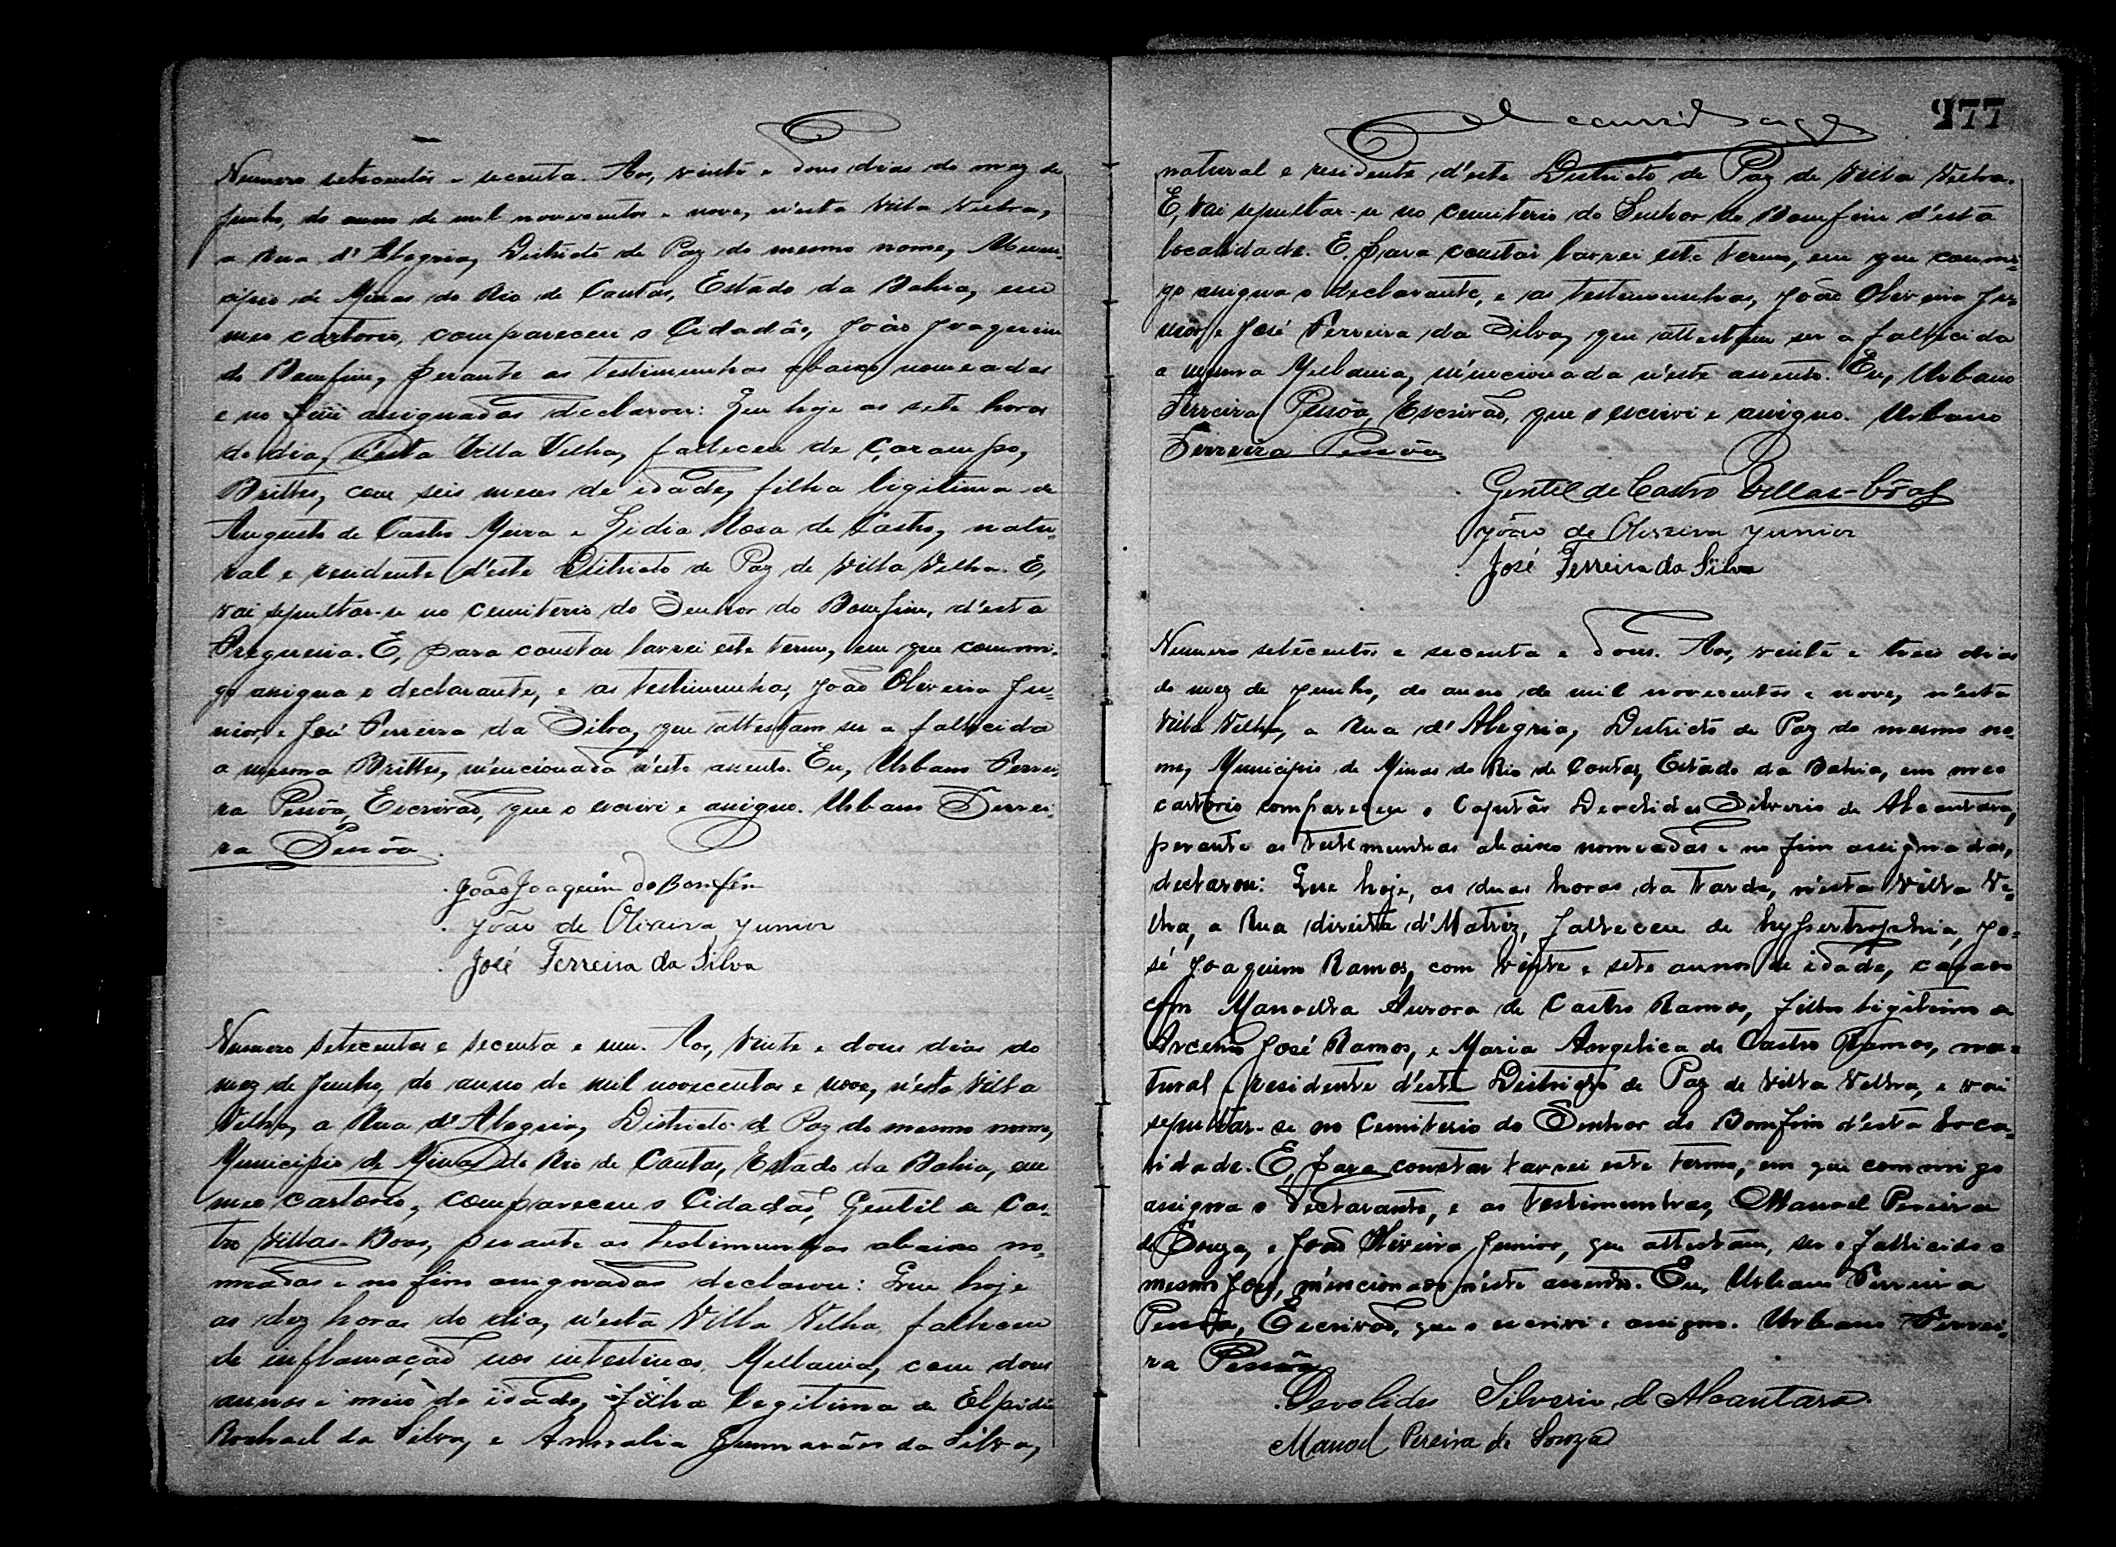 Numero setecentos e secenta. Aos, vinte e dous dias do mez de
Junho, do anno de mil novecentos e nove, n'esta Villa Velha,
a Rua d'Alegria, Districto de Paz do mesmo nome, Muni-
cipio de Minas do Rio de Contas, Estado da Bahia, em
meo cartorio, compareceu o Cidadão, João Joaquim
do Bomfim, perante as testimunhas abaixo nomeadas
e no fim assignadas declarou: Que hoje as sete horas
do dia, n'esta Villa Velha, falleceu de Çarampo,
Brittes, com seis mezes de idade, filha legitima de
Augusto de Castro Meira e Lidia Rosa de Castro, natu-
ral e residente d'este Districto de Paz de Villa Velha. E,
vai sepultar-se no cemiterio do Senhor do Bomfim, d'esta
Freguesia. E, para constar lavrei este termo, em que commi-
go assigna o declarante, e as testimunhas, João Oliveira Ju-
nior, e José Ferreira da Silva, que attestam ser a fallecida
a mesma Brittes, mencionada n'este assento. Eu, Urbano Ferrei-
ra Pessôa, Escrivão, que o escrivi e assigno. Urbano Ferrei-
ra Pessôa.
João Joaquim do Bomfin
João de Oliveira Junior
José Ferreira da Silva
Numero setecentos e secenta e um. Aos, vinte e dous dias do
mez de Junho, do anno de mil novecentos e nove, n'esta Villa
Velha, a Rua d'Alegria, Districto de Paz do mesmo nome,
Municipio de Minas do Rio de Contas, Estado da Bahia, em
meo cartorio, compareceu o Cidadão, Gentil de Cas-
tro Villas-Boas, perante as testimunhas abaixo no-
meadas e no fim assignadas declarou: Que hoje
as dez horas do dia, n'esta Villa Velha, falleceu
de inflamação nos intestinos, Mellania, com dous
annos e meio de idade, filha legitima de Elpidio
da Silva, e da Silva,
277
natural e residente d'este Districto de Paz de Villa Velha.
E, vai sepultar-se no cemiterio do Senhor do Bomfim d'esta
localidade. E, para constar lavrei este termo, em que commi-
go assigna o declarante, e as testimunhas, João Oliveira Ju-
nior, e José Ferreira da Silva, que attestam ser a fallecida
a mesma Mellania, mencionada n'este assento. Eu, Urbano
Ferreira Pessôa, Escrivão, que o escrivi e assigno. Urbano
Ferreira Pessôa
Gentil de Castro Villas-Bôas
João de Oliveira Junior
José Ferreira da Silva
Numero setecentos e secenta e dous. Aos, vinte e tres dias
do mez de Junho, do anno de mil novecentos e nove, n'esta
Villa Velha, a Rua d'Alegria, Districto de Paz do mesmo no-
me, Municipio de Minas do Rio de Contas, Estado da Bahia, em meo
cartorio compareceu o Capitão Deoclides Silverio de Alcantara,
perante as testimunhas abaixo nomeadas e no fim assignadas,
declarou: Que hoje, as duas horas da tarde, n'esta Villa Ve-
lha, a Rua direita d'Matriz, falleceu de hypertrophia, Jo-
sé Joaquim Ramos, com vinte e sete annos de idade, casado
com Manoella Aurora de Castro Ramos, filho legitimo de
José Ramos, e Maria Angelica de Castro Ramos, na-
tural e residente d'este Districto de Paz de Villa Velha, e vai
sepultar-se no Cemiterio do Senhor do Bomfim d'esta loca-
lidade. E, para constar lavrei este termo, em que commigo
assigna o declarante, e as testimunhas, Manoel Pereira
de Souza, e João Oliveira Junior, que attestam, ser o fallecido o
mesmo José, mencionado n'este assento. Eu, Urbano Ferreira
Pessôa, Escrivão, que o escrivi e assigno. Urbano Ferrei-
ra Pessôa
Deoclides Silverio d'Alcantara
Manoel Pereira de Souza